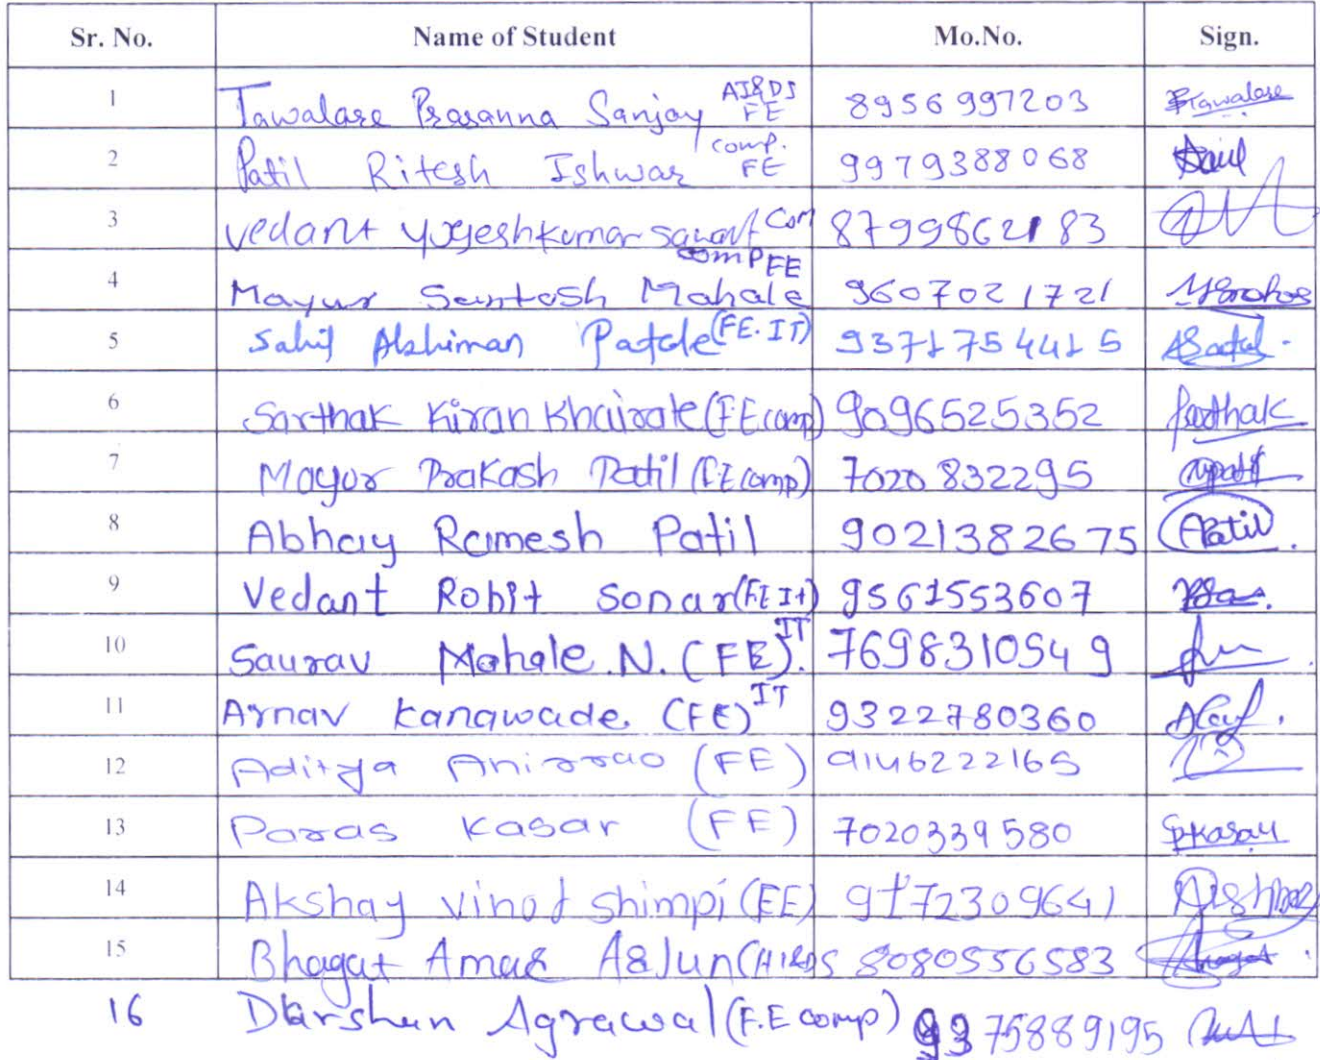 Sr. No. Name of Student Mo.No. Sign.
1 Tawalare Prasanna Sanjay AI&DS FE 8956997203 PTawalare
2 Patil Ritesh Ishwar comp. FE 9979388068
3 vedant yogeshkumar sawant com 8799862183
4 Mayur Santosh Mahale comp FE 9607021721
5 Sahil Abhiman Patole (FE.IT) 9371754415
6 Sarthak Kiran Khairate (FE comp) 9096525352 Sarthak
7 Mayur Prakash Patil (FE comp) 7020832295
8 Abhay Ramesh Patil 9021382675 APatil
9 Vedant Rohit Sonar (FE It) 9561553607
10 Saurav Mahale N. (FE) IT. 7698310549
11 Arnav Kanawade (FE) IT 9322780360
12 Aditya Anirrao (FE) 9146222165
13 Paras Kasar (FE) 7020339580 Pkasar
14 Akshay vinod shimpi (FE) 9172309641
15 Bhagat Amar Arjun (AI&DS 8080556583
16 Darshan Agrawal (F.E comp) 9375889195